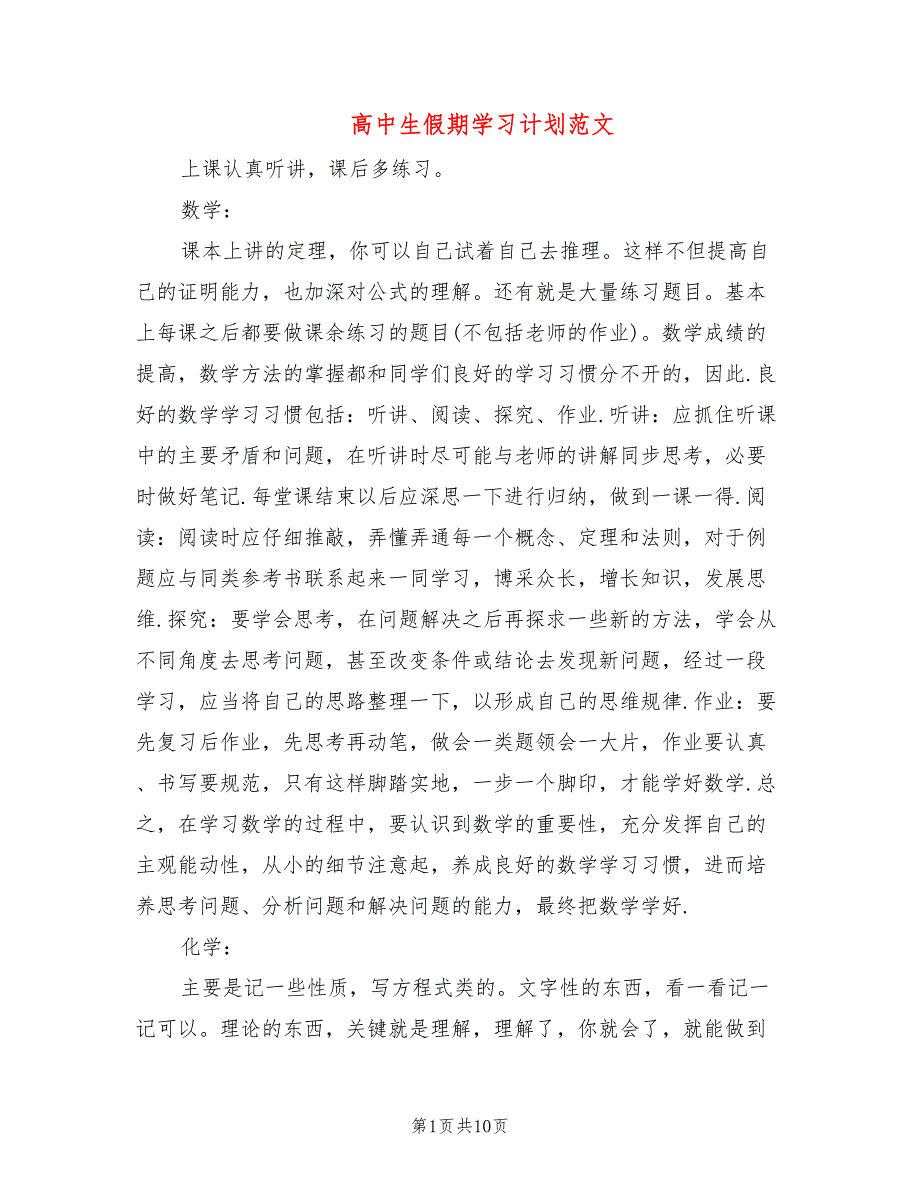 高中生假期学习计划范文
上课认真听讲，课后多练习。
数学：
课本上讲的定理，你可以自己试着自己去推理。这样不但提高自
己的证明能力，也加深对公式的理解。还有就是大量练习题目。基本
上每课之后都要做课余练习的题目(不包括老师的作业)。数学成绩的
提高，数学方法的掌握都和同学们良好的学习习惯分不开的，因此.良
好的数学学习习惯包括：听讲、阅读、探究、作业.听讲：应抓住听课
中的主要矛盾和问题，在听讲时尽可能与老师的讲解同步思考，必要
时做好笔记.每堂课结束以后应深思一下进行归纳，做到一课一得.阅
读：阅读时应仔细推敲，弄懂弄通每一个概念、定理和法则，对于例
题应与同类参考书联系起来一同学习，博采众长，增长知识，发展思
维.探究：要学会思考，在问题解决之后再探求一些新的方法，学会从
不同角度去思考问题，甚至改变条件或结论去发现新问题，经过一段
学习，应当将自己的思路整理一下，以形成自己的思维规律.作业：要
先复习后作业，先思考再动笔，做会一类题领会一大片，作业要认真
、书写要规范，只有这样脚踏实地，一步一个脚印，才能学好数学.总
之，在学习数学的过程中，要认识到数学的重要性，充分发挥自己的
主观能动性，从小的细节注意起，养成良好的数学学习习惯，进而培
养思考问题、分析问题和解决问题的能力，最终把数学学好.
化学：
主要是记一些性质，写方程式类的。文字性的东西，看一看记一
记可以。理论的东西，关键就是理解，理解了，你就会了，就能做到
第1页共10页